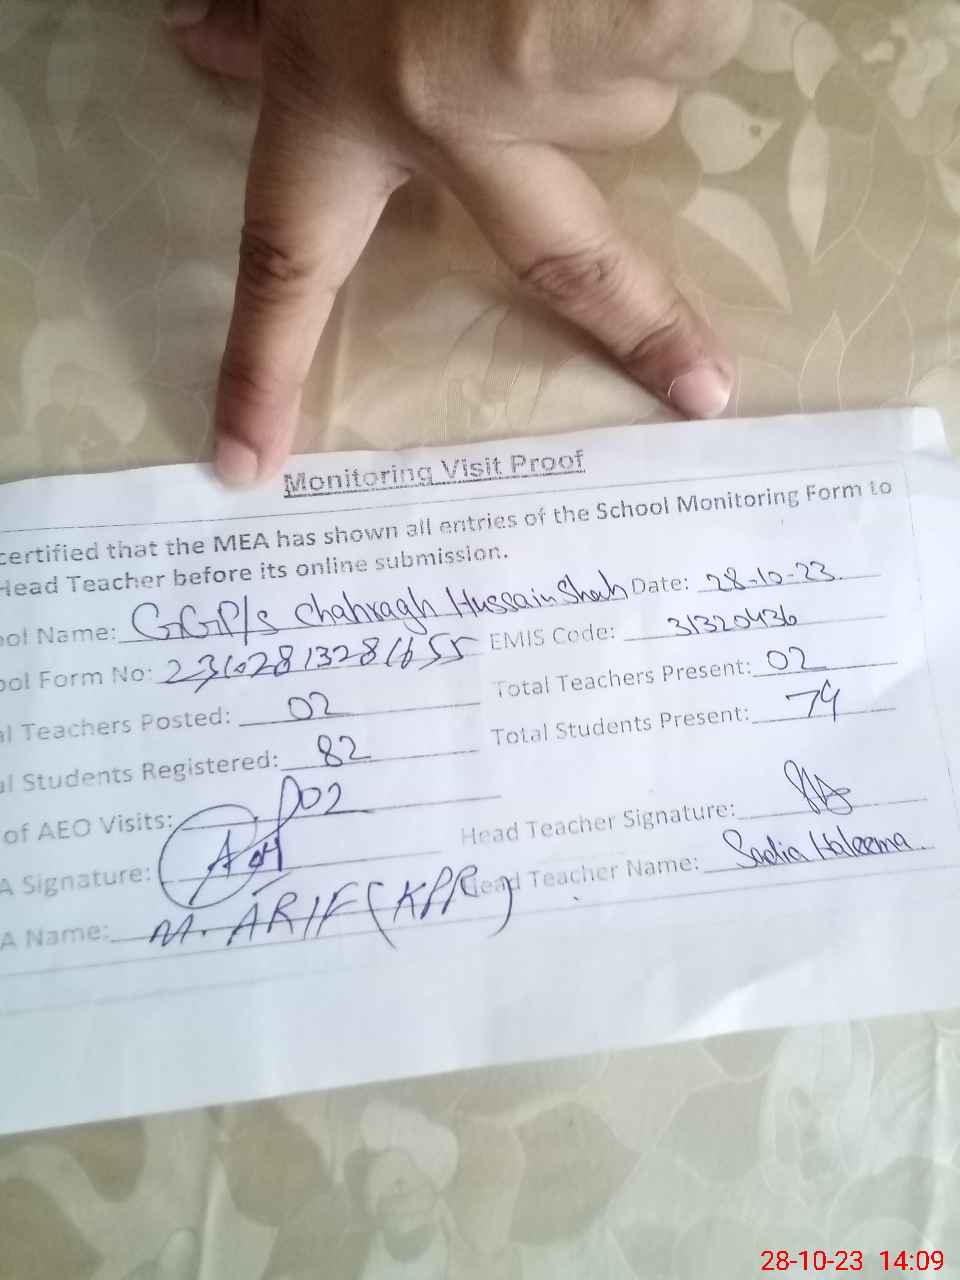 Monitoring Visit Proof
certified that the MEA has shown all entries of the School Monitoring Form to
Head Teacher before its online submission.
ool Name: GGP/s Chahragh Hussain Shah Date: 28-10-23
ool Form No: EMIS Code: 31320436
al Teachers Posted: 02 Total Teachers Present: 02
al Students Registered: 82 Total Students Present: 74
of AEO Visits: 02
A Signature: Head Teacher Signature:
A Name: M. ARIF (KPR) Head Teacher Name: Sadia Haleema
28-10-23 14:09